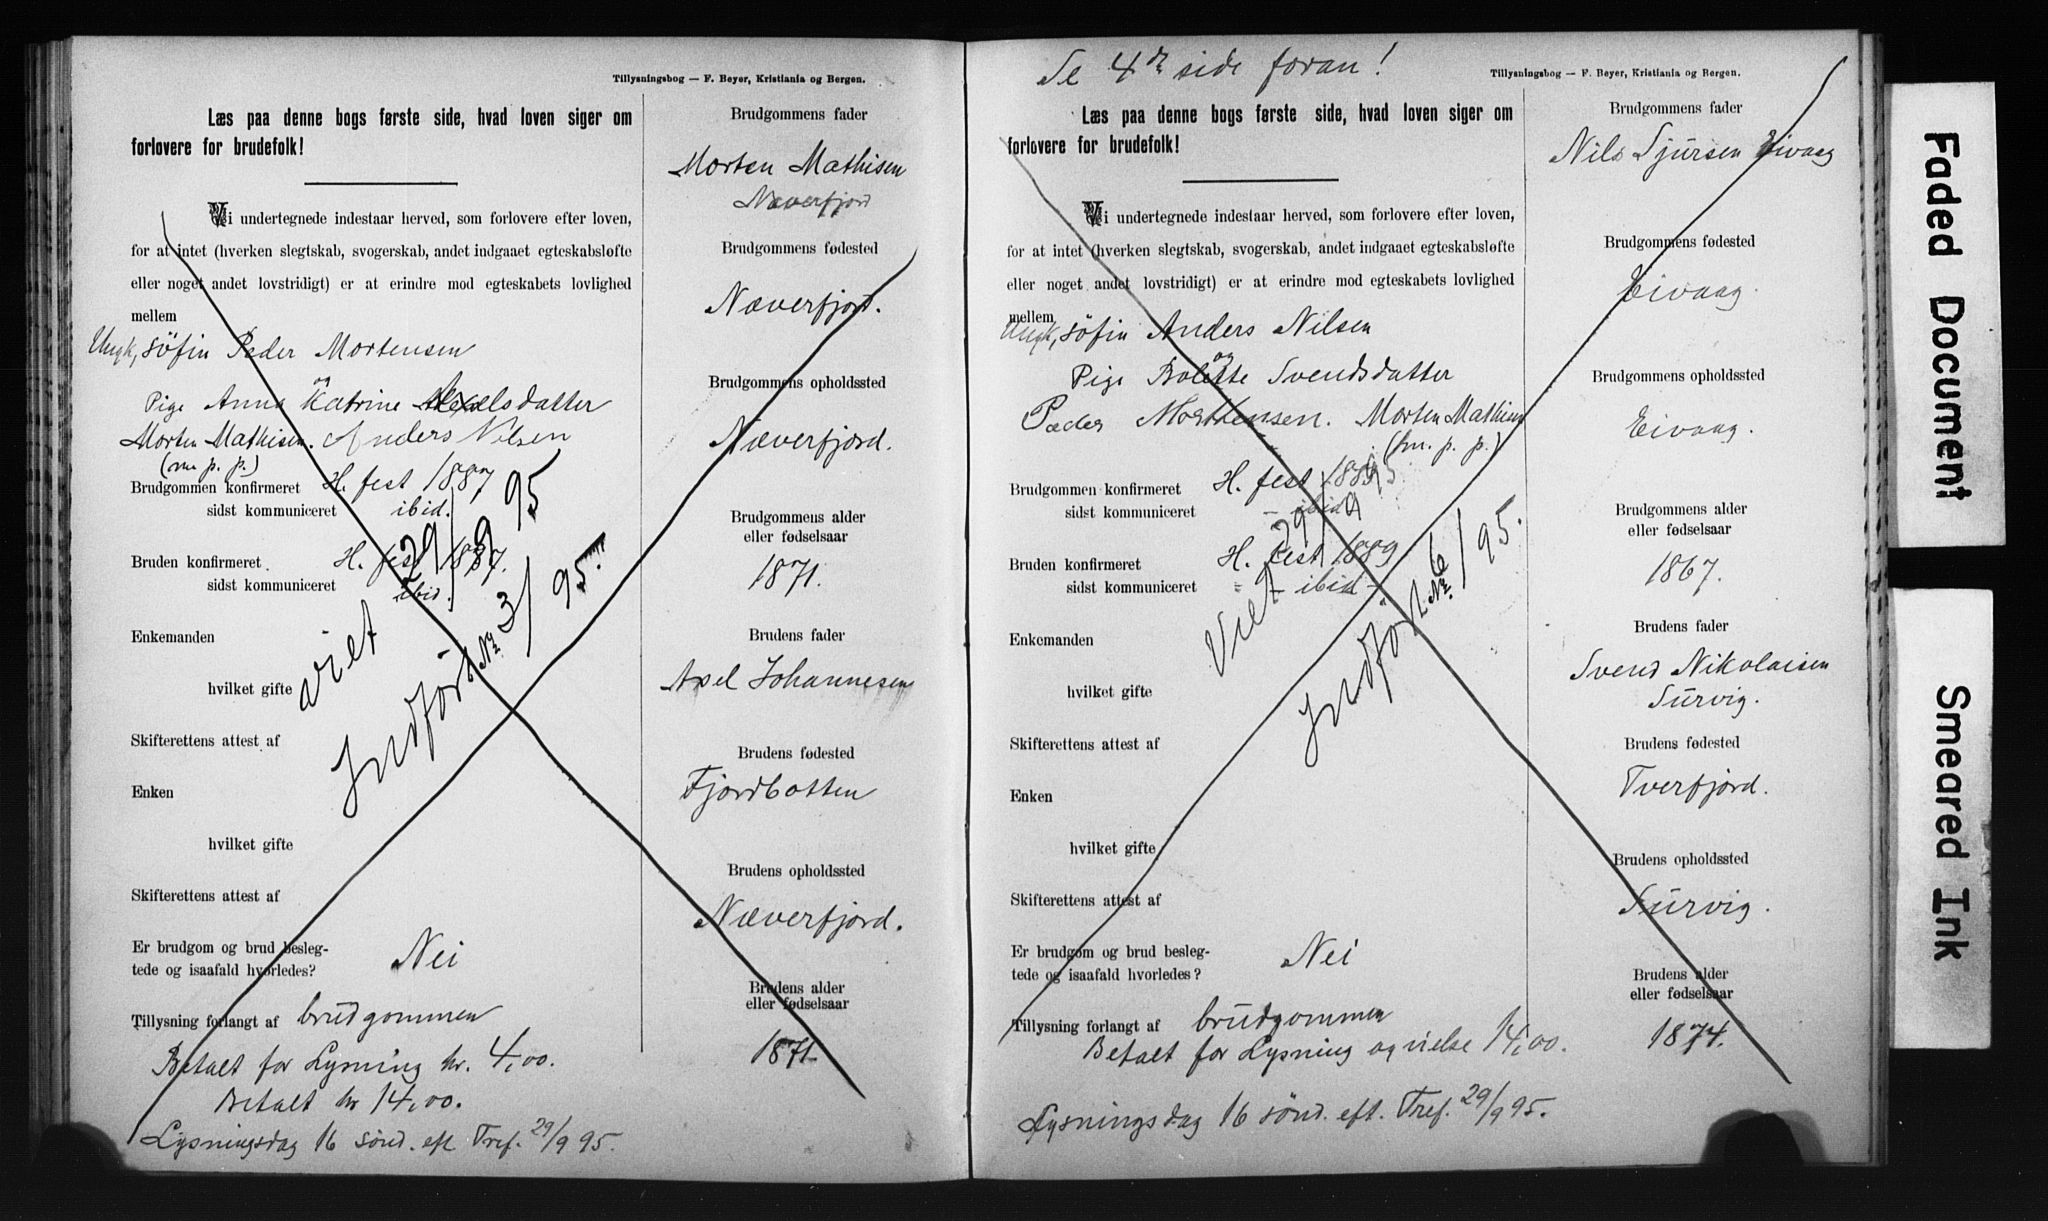 Tillysningsbog — F. Beyer, Kristiania og Bergen.
Læs paa denne bogs første side, hvad loven siger om
forlovere for brudefolk!
Vi undertegnede indestaar herved, som forlovere efter loven,
for at intet (hverken slegtskab, svogerskab, andet indgaaet egteskabsløfte
eller noget andet lovstridigt) er at erindre mod egteskabets lovlighed
mellem
Ungk, söfin Peder Mortensen
og
Pige Anna Katrine Axelsdatter
Morten Mathisen. Anders Nilsen
(m. p. p.)
Brudgommen konfirmeret H. fest 1887
sidst kommuniceret ibid.
Bruden konfirmeret H. fest 1887.
sidst kommuniceret ibid.
viet 29/9 95
Indført No 3/95.
Enkemanden
hvilket gifte
Skifterettens attest af
Enken
hvilket gifte
Skifterettens attest af
Er brudgom og brud besleg-
tede og isaafald hvorledes? Nei
Tillysning forlangt af brudgommen
Betalt for Lysning kr. 4,00.
Betalt kr 14,00.
Lysningsdag 16 sönd. eft Tref. 29/9 95.
Brudgommens fader
Morten Mathisen
Næverfjord
Brudgommens fødested
Næverfjord.
Brudgommens opholdssted
Næverfjord.
Brudgommens alder
eller fødselsaar
1871.
Brudens fader
Axel Johannesen
Brudens fødested
Fjordbotten
Brudens opholdssted
Næverfjord.
Brudens alder
eller fødselsaar
1871
Se 4de side foran!
Tillysningsbog — F. Beyer, Kristiania og Bergen.
Læs paa denne bogs første side, hvad loven siger om
forlovere for brudefolk!
Vi undertegnede indestaar herved, som forlovere efter loven,
for at intet (hverken slegtskab, svogerskab, andet indgaaet egteskabsløfte
eller noget andet lovstridigt) er at erindre mod egteskabets lovlighed
mellem
Ungk, söfin Anders Nilsen
og
Pige Bolette Svendsdatter
Peder Morttensen. Morten Mathisen
(m. p. p.)
Brudgommen konfirmeret H. fest
sidst kommuniceret - ibid
Bruden konfirmeret H. fest 1889
sidst kommuniceret - ibid -
Viet 29/9 95
Indført No 6/95.
Enkemanden
hvilket gifte
Skifterettens attest af
Enken
hvilket gifte
Skifterettens attest af
Er brudgom og brud besleg-
tede og isaafald hvorledes? Nei
Tillysning forlangt af brudgommen
Betalt for Lysning og vielse 14,00.
Lysningsdag 16 sönd. eft. Tref. 29/9 95.
Brudgommens fader
Nils Sjursen Eivaag
Brudgommens fødested
Eivaag.
Brudgommens opholdssted
Eivaag.
Brudgommens alder
eller fødselsaar
1867.
Brudens fader
Svend Nikolaisen
Survig.
Brudens fødested
Tverfjord.
Brudens opholdssted
Survig.
Brudens alder
eller fødselsaar
1874.
Faded Document
Smeared Ink